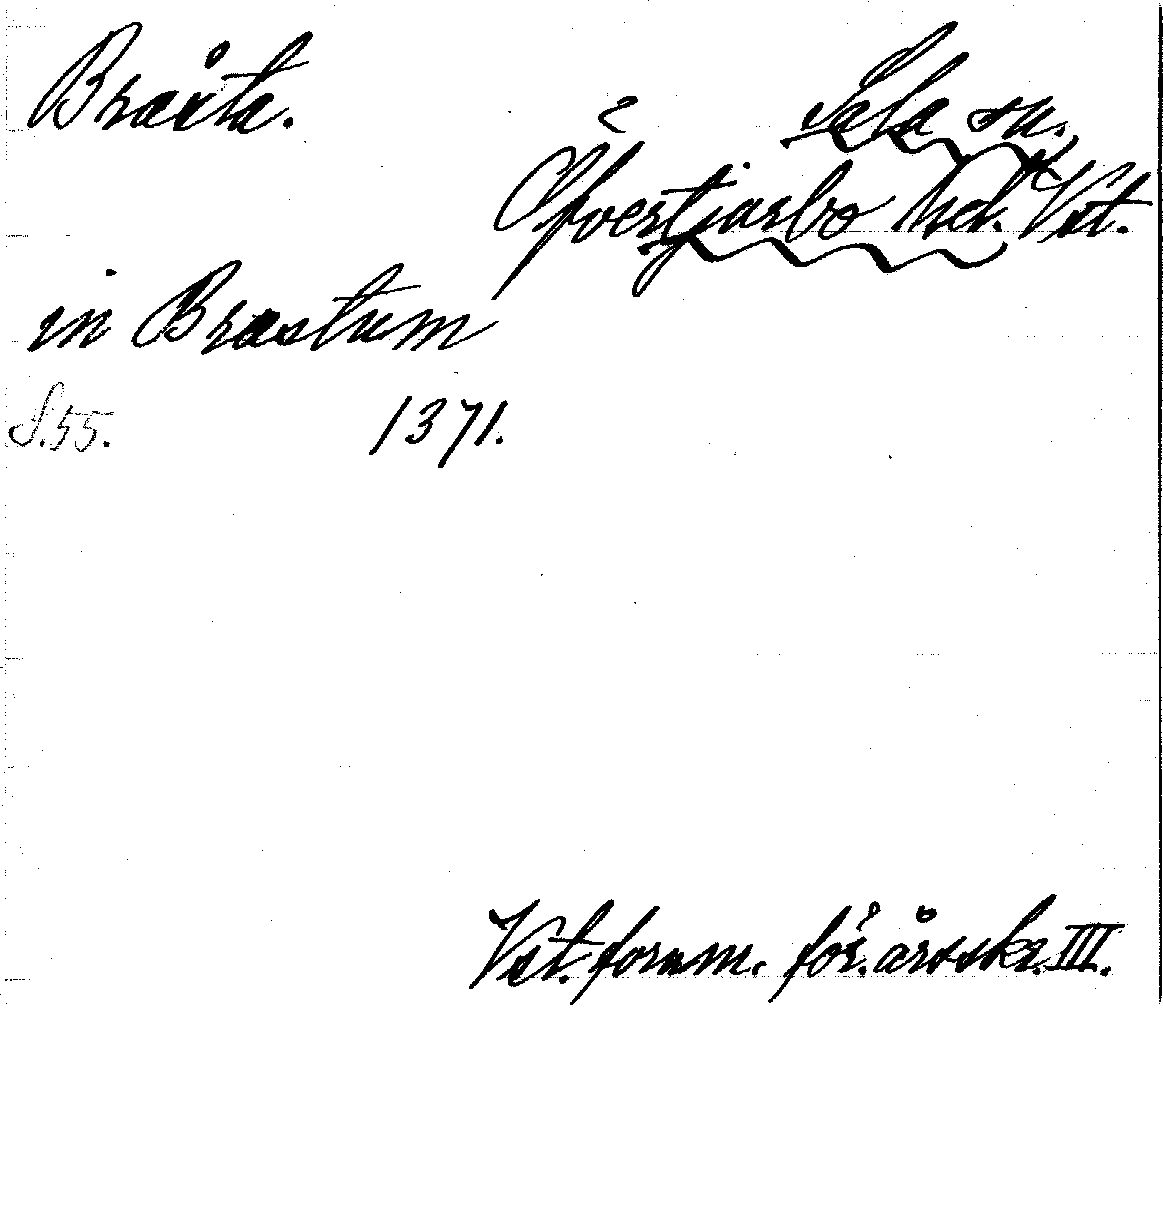 Braåta.
Sala sn.
Öfvertjurbo hd. Vstm.
in Brastum
S. 55. 1371.
Vst. fornm. för. årsskr. III.